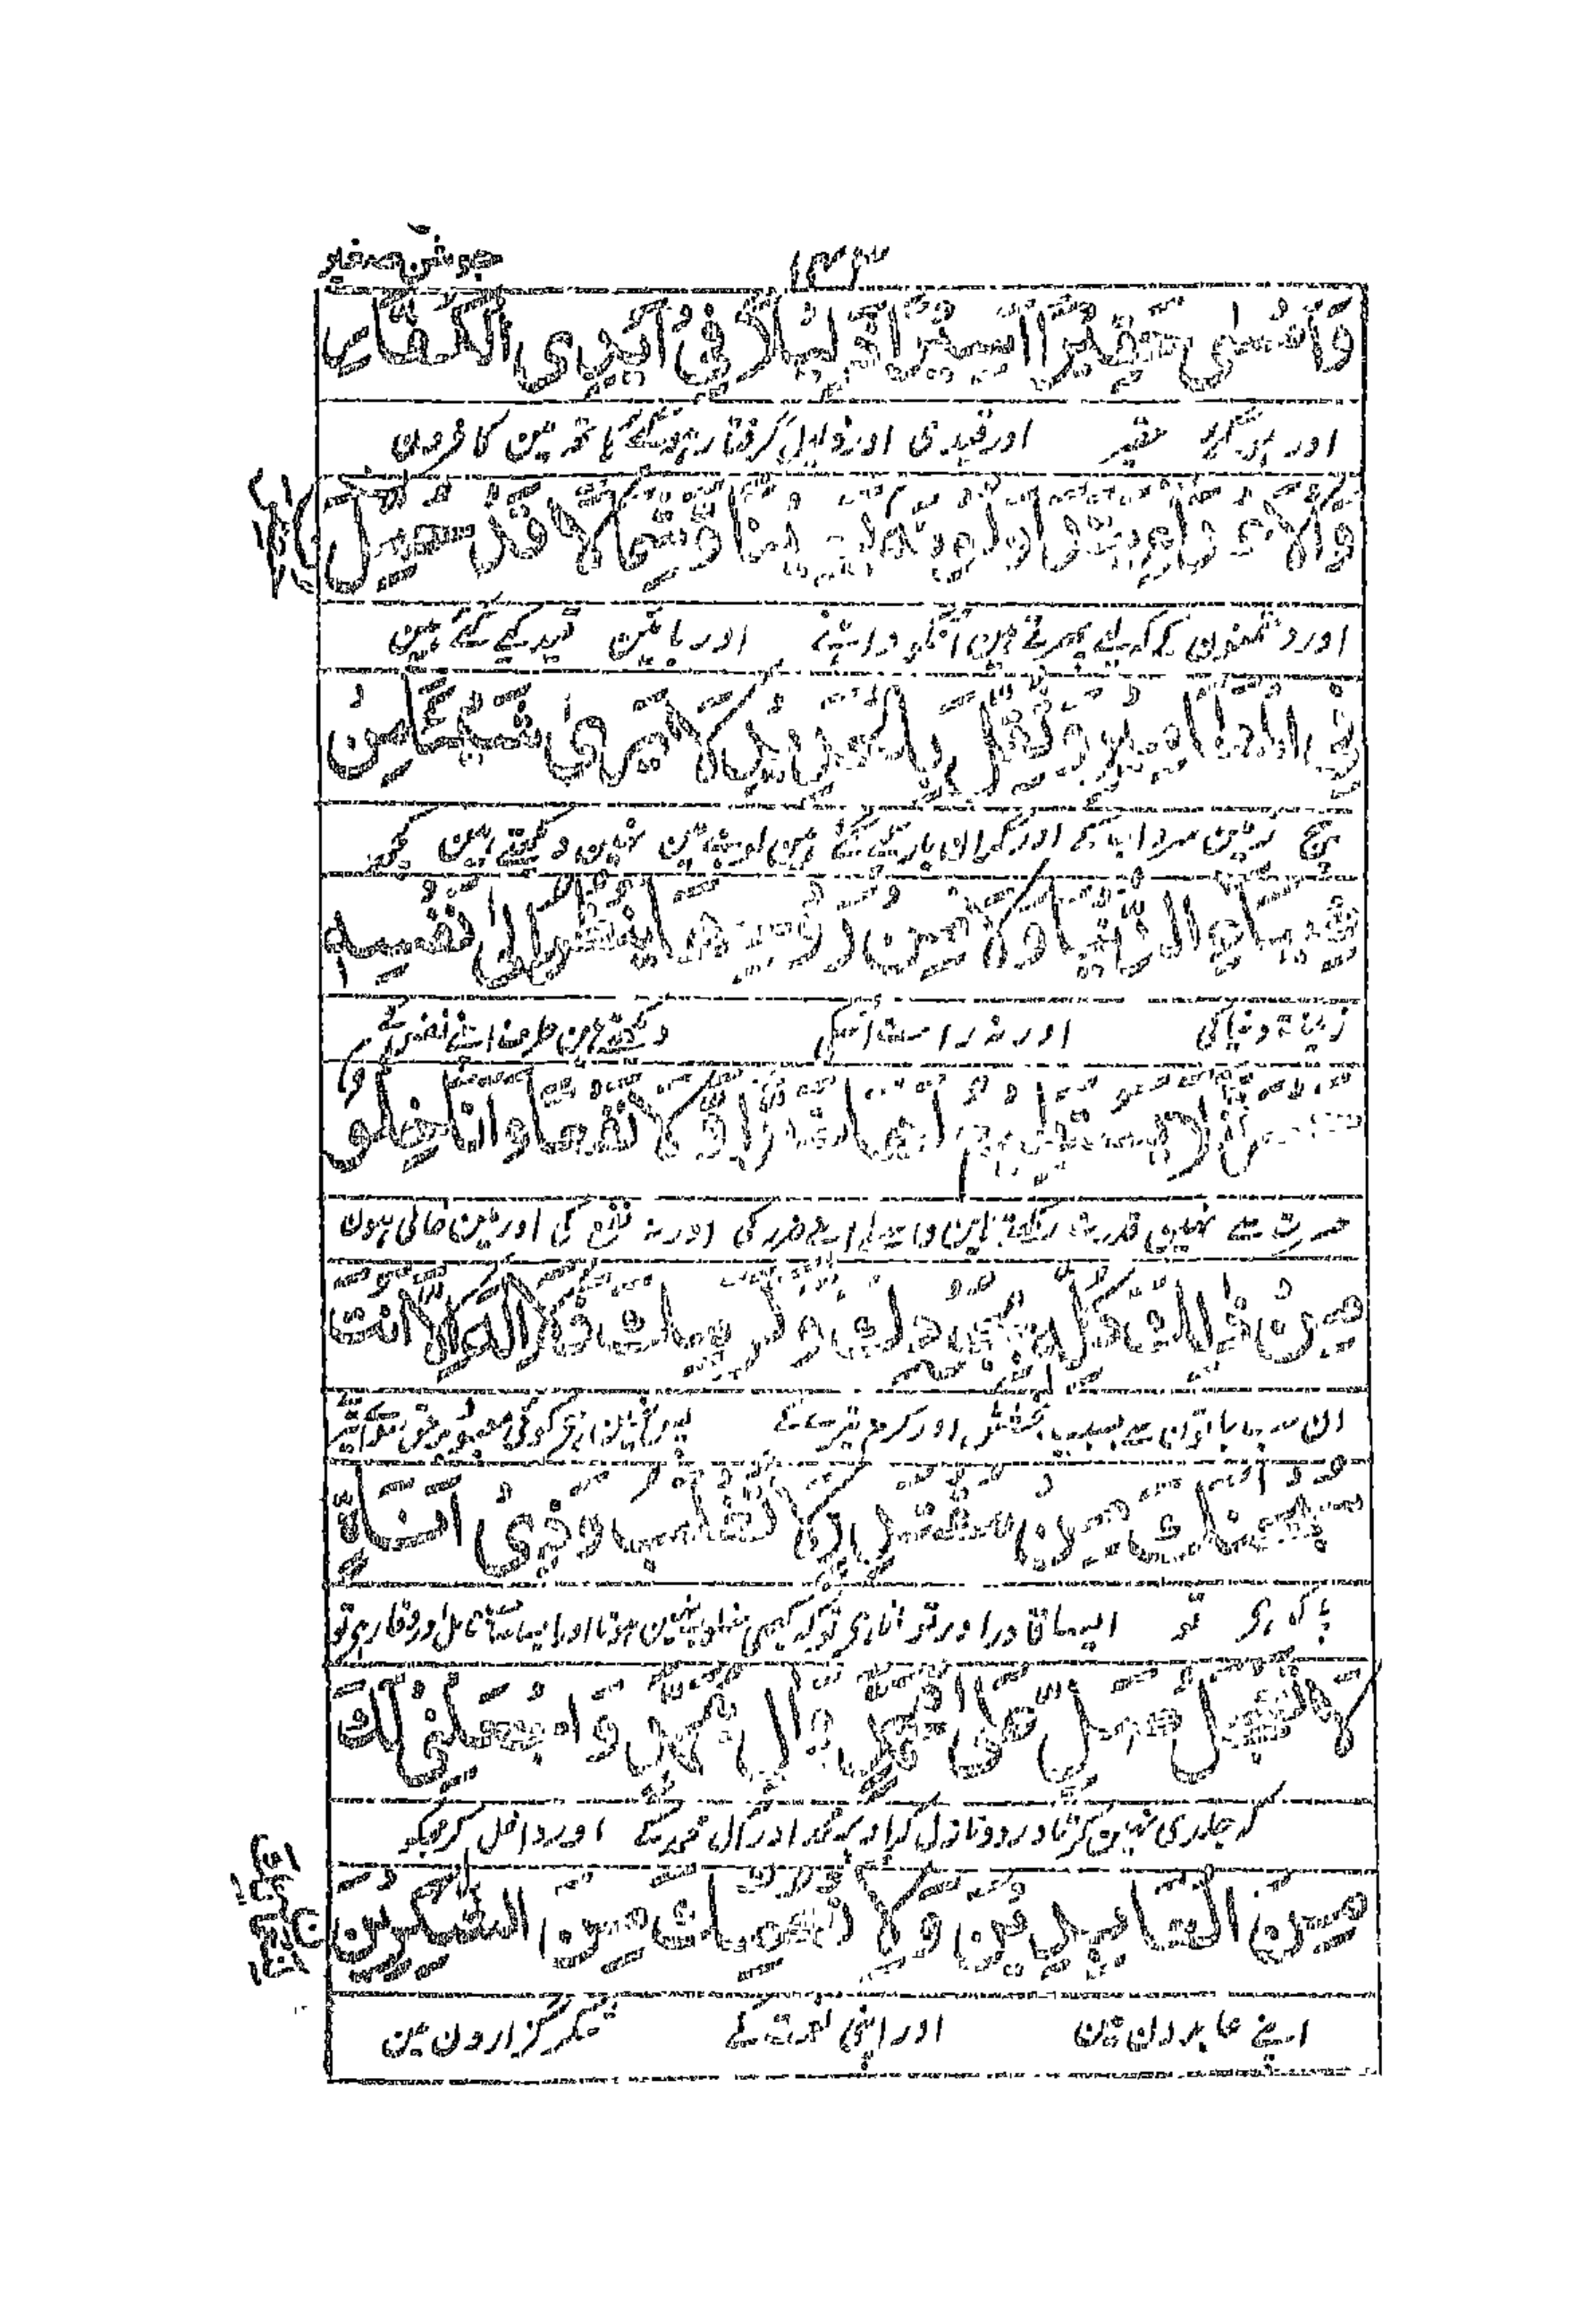 جوشن صغیر
١٣٣
وَاَمْسٰى حَقِيْرًا اَسِيْرًا ذَلِيْلًا فِيْ اَيْدِى الْكُفَّارِ
اور ہو گیا حقیر اور قیدی اور ذلیل گرفتار ہو کے ہاتھ مین کافرون
وَالْاَعْدَاءِ يَتَدَاوَلُوْنَهُ يَمِيْنًا وَّشِمَالًا قَدْ حُمِّلَ
اور دشمنون کے کہ لیے پھرتے ہین انکو داہنے اور بائین قید کیے گئے ہین
فِى الْمَطَامِيْرِ وَثُقِّلَ بِالْحَدِيْدِ لَا يَرٰى شَيْئًا مِنْ
بیچ سرداب کے اور گران بار کیے گئے ہین لوہے مین نہین دیکھتے ہین کچھ
ضِيَاءِ الدُّنْيَا وَلَا مِنْ رَوْحِهَا يَنْظُرُ اِلٰى نَفْسِهٖ
دنیا کی اور نہ راحت اسکی دیکھتے ہین طرف اپنے نفس کے
حَسْرَةً لَا يَسْتَطِيْعُ لَهَا ضَرًّا وَّلَا نَفْعًا وَاَنَا خِلْوٌ
حسرت سے نہین قدرت رکھتے ہین واسطے اپنے ضرر کی اور نہ نفع کی اور مین خالی ہون
مِنْ ذٰلِكَ كُلِّهٖ بِجُوْدِكَ وَكَرَمِكَ فَلَا اِلٰهَ اِلَّا اَنْتَ
ان سب باتون سے بسبب بخشش اور کرم تیرے کے پس نہین ہے کوئی معبود سوا تیرے
سُبْحَانَكَ مِنْ مُقْتَدِرٍ لَا يُغْلَبُ وَذِىْ اَنَاةٍ
پاک ہی تو ایسا قادر اور توانا ہی تو کہ کبھی مغلوب نہین ہوتا اور ایسا
لَا يَعْجَلُ صَلِّ عَلٰى مُحَمَّدٍ وَّاٰلِ مُحَمَّدٍ وَاجْعَلْنِىْ لَكَ
کہ جلدی نہین کرتا درود نازل کر اوپر محمد اور آل محمد کے اور داخل کر مجکو
مِنَ الْعَابِدِيْنَ وَلِاَنْعُمِكَ مِنَ الشَّاكِرِيْنَ
اپنے عابدون مین اور اپنی نعمت کے شکر گزارون مین